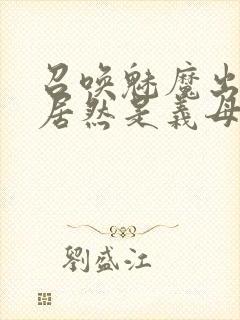 召唤魅魔出
居然是義母
劉盛江